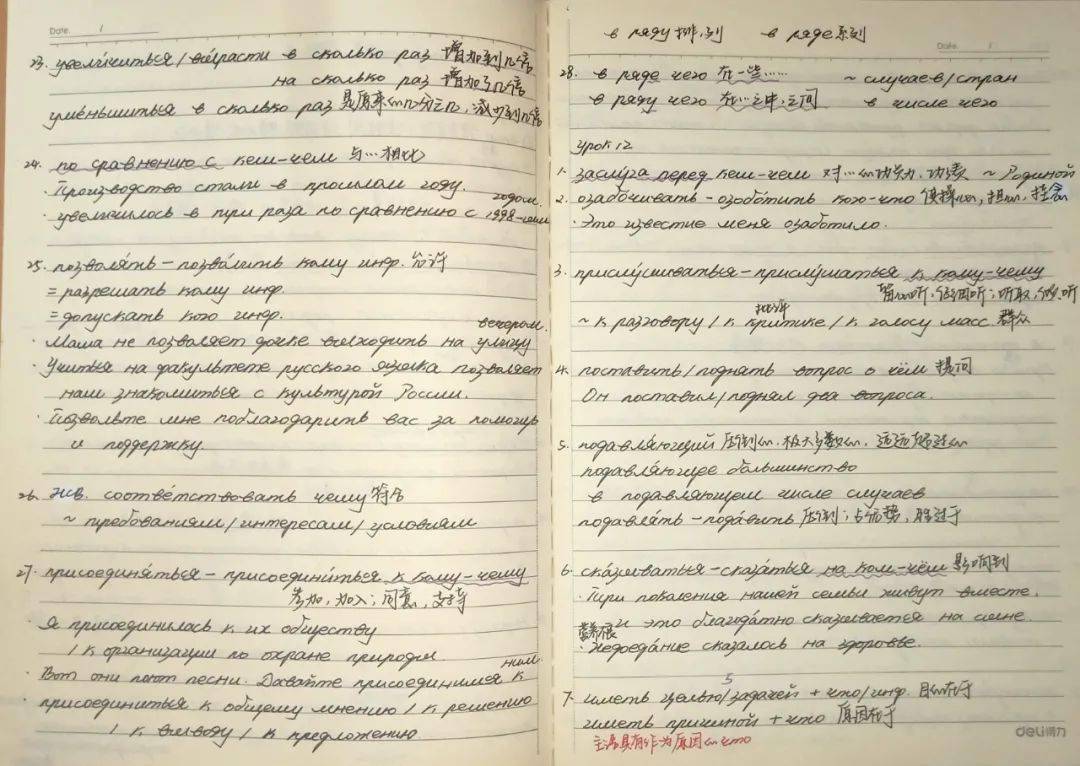 Date. 1
23. увеличиться/возрасти в сколько раз 增加到几倍
на сколько раз 增加了几倍
уменьшиться в сколько раз 是原来的几分之几, 减少到几倍
24. по сравнению с кем-чем 与…相比
· Производство стали в прошлом году
годом.
· увеличилось в три раза по сравнению с 1998-ым
25. позволять – позволить кому инф. 允许
= разрешать кому инф.
= допускать кого инф.
вечером.
· Мама не позволяет дочке выходить на улицу
· Учиться на факультете русского языка позволяет
нам знакомиться с культурой России.
· Позвольте мне поблагодарить вас за помощь
и поддержку.
26. нсв. соответствовать чему 符合
~ требованиям/интересам/условиям
27. присоединяться – присоединиться к кому-чему
参加, 加入; 同意, 支持
· Я присоединилась к их обществу
/ к организации по охране природы.
ним.
· Вот они поют песни. Давайте присоединимся к
· присоединиться к общему мнению / к решению
/ к выводу / к предложению
в ряду 排, 列 в ряде 系列
Date. 1
28. в ряде чего 在一些…… ~ случаев/стран
в ряду чего 在…之中, 之间 в числе чего
урок 12
1. заслуга перед кем-чем 对…的功劳, 功绩 ~ Родиной
2. озабочивать – озаботить кого-что 使操心, 担心, 挂念
· Это известие меня озаботило.
3. прислушиваться – прислушаться к кому-чему
留心听, 仔细听; 听取, 倾听
批评
~ к разговору / к критике / к голосу масс 群众
4. поставить/поднять вопрос о чём 提问
Он поставил/поднял два вопроса.
5. подавляющий 压倒的, 极大多数的, 远远超过的
подавляющее большинство
в подавляющем числе случаев
подавлять – подавить 压制; 占优势, 胜过于
6. сказываться – сказаться на ком-чём 影响到
· Три поколения нашей семьи живут вместе.
и это благодатно сказывается на сыне.
营养不良
· Недоедание сказалось на здоровье.
5
7. иметь целью/задачей + что/инф. 目的在于
иметь причиной + что 原因在于
主语具有作为原因的что
deli得力